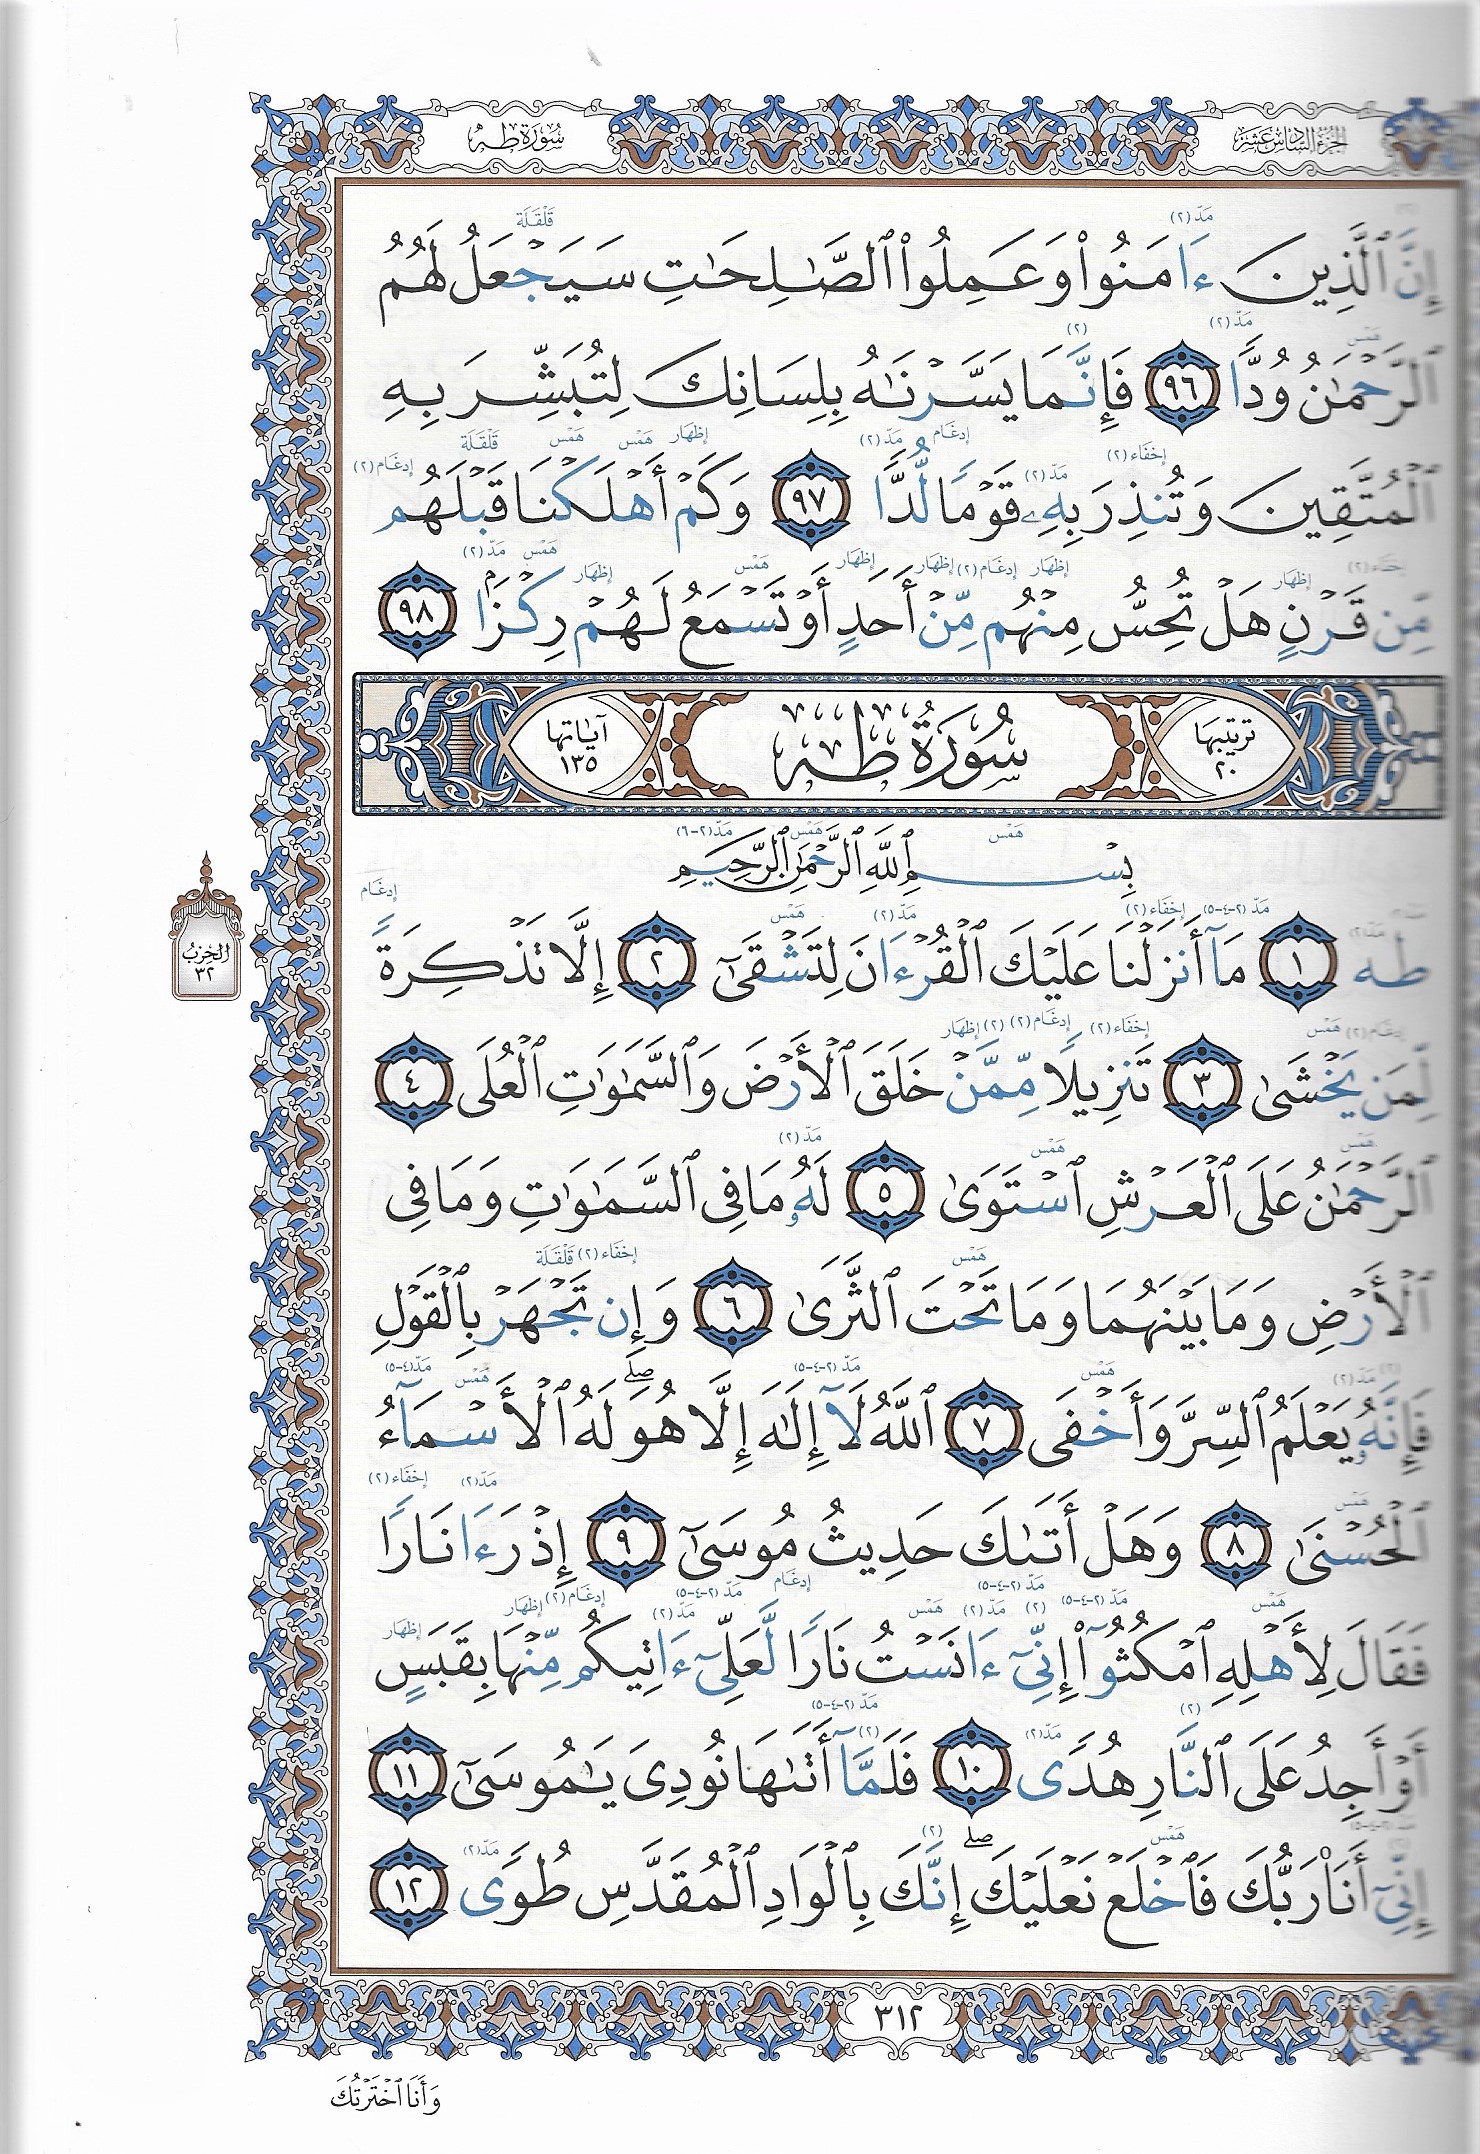 الجزء السادس عشر
سورة طه
إِنَّ ٱلَّذِينَ ءَامَنُوا۟ وَعَمِلُوا۟ ٱلصَّـٰلِحَـٰتِ سَيَجْعَلُ لَهُمُ
ٱلرَّحْمَـٰنُ وُدًّا ٩٦ فَإِنَّمَا يَسَّرْنَـٰهُ بِلِسَانِكَ لِتُبَشِّرَ بِهِ
ٱلْمُتَّقِينَ وَتُنذِرَ بِهِۦ قَوْمًا لُّدًّا ٩٧ وَكَمْ أَهْلَكْنَا قَبْلَهُم
مِّن قَرْنٍ هَلْ تُحِسُّ مِنْهُم مِّنْ أَحَدٍ أَوْ تَسْمَعُ لَهُمْ رِكْزًۢا ٩٨
ترتيبها ٢٠
سُورَةُ طه
آياتها ١٣٥
بِسْمِ ٱللَّهِ ٱلرَّحْمَـٰنِ ٱلرَّحِيمِ
طه ١ مَآ أَنزَلْنَا عَلَيْكَ ٱلْقُرْءَانَ لِتَشْقَىٰٓ ٢ إِلَّا تَذْكِرَةً
لِّمَن يَخْشَىٰ ٣ تَنزِيلًا مِّمَّنْ خَلَقَ ٱلْأَرْضَ وَٱلسَّمَـٰوَٰتِ ٱلْعُلَى ٤
ٱلرَّحْمَـٰنُ عَلَى ٱلْعَرْشِ ٱسْتَوَىٰ ٥ لَهُۥ مَا فِى ٱلسَّمَـٰوَٰتِ وَمَا فِى
ٱلْأَرْضِ وَمَا بَيْنَهُمَا وَمَا تَحْتَ ٱلثَّرَىٰ ٦ وَإِن تَجْهَرْ بِٱلْقَوْلِ
فَإِنَّهُۥ يَعْلَمُ ٱلسِّرَّ وَأَخْفَى ٧ ٱللَّهُ لَآ إِلَـٰهَ إِلَّا هُوَ ۖ لَهُ ٱلْأَسْمَآءُ
ٱلْحُسْنَىٰ ٨ وَهَلْ أَتَىٰكَ حَدِيثُ مُوسَىٰٓ ٩ إِذْ رَءَا نَارًا
فَقَالَ لِأَهْلِهِ ٱمْكُثُوٓا۟ إِنِّىٓ ءَانَسْتُ نَارًا لَّعَلِّىٓ ءَاتِيكُم مِّنْهَا بِقَبَسٍ
أَوْ أَجِدُ عَلَى ٱلنَّارِ هُدًى ١٠ فَلَمَّآ أَتَىٰهَا نُودِىَ يَـٰمُوسَىٰٓ ١١
إِنِّىٓ أَنَا۠ رَبُّكَ فَٱخْلَعْ نَعْلَيْكَ ۖ إِنَّكَ بِٱلْوَادِ ٱلْمُقَدَّسِ طُوًى ١٢
الحزب
٣٢
٣١٢
وَأَنَا ٱخْتَرْتُكَ